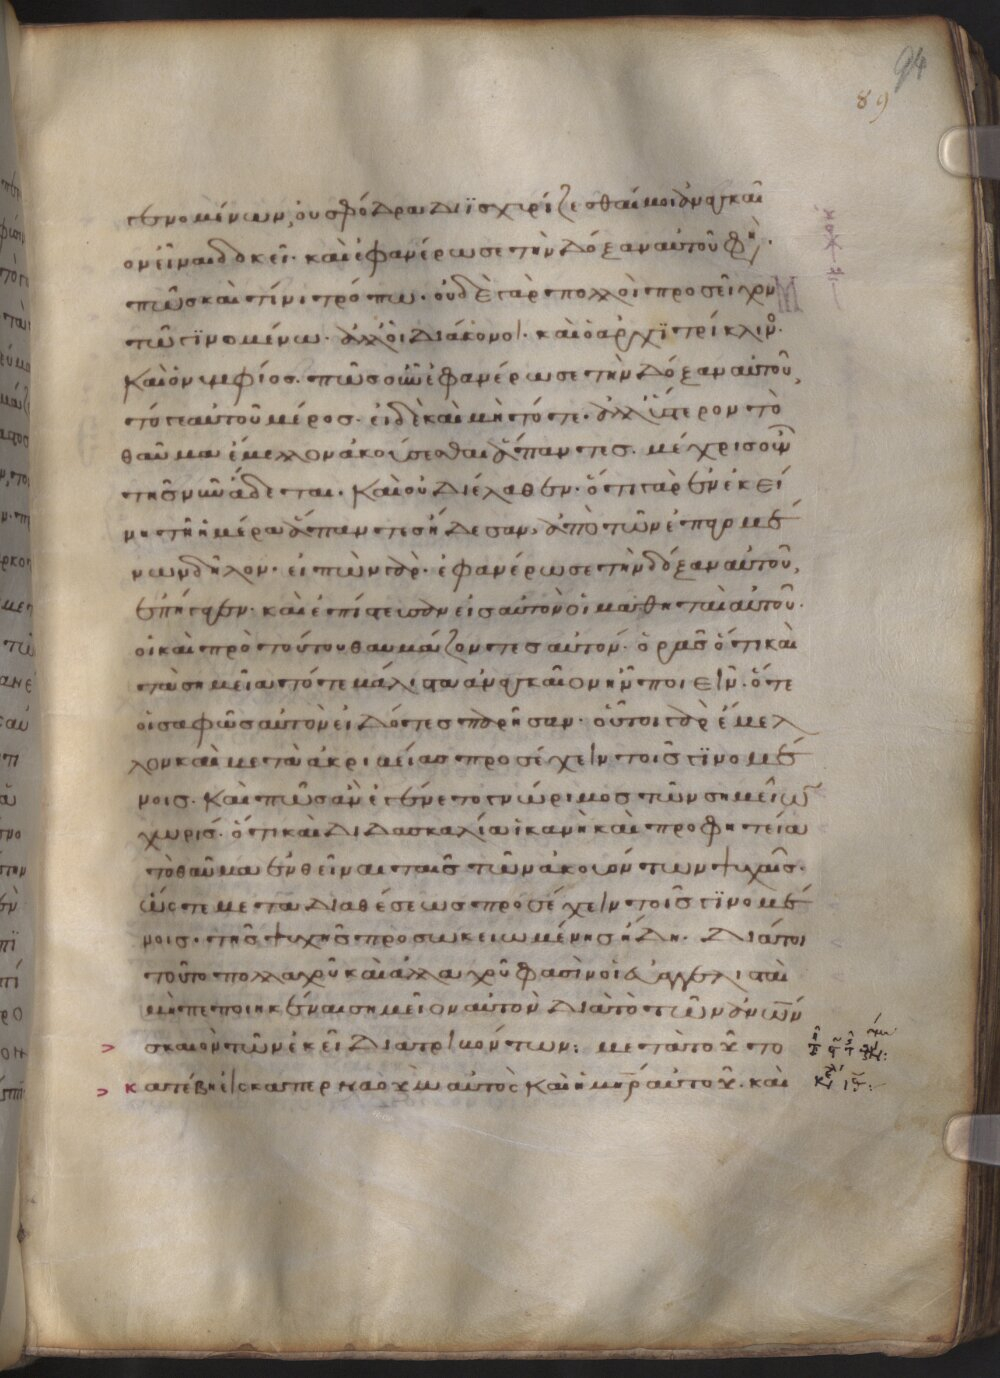 94
89
γενομένων, οὐ σφόδρα διϊσχυρίζεσθαί μοι ἀναγκαῖ
ον εἶναι δοκεῖ· καὶ ἐφανέρωσε τὴν δόξαν αὐτοῦ φη·
πῶς καὶ τίνι τρόπω· οὐδὲ γὰρ πολλοὶ προσεῖχον
τῶ γινομένω· ἀλλ' οἱ διάκονοι· καὶ ὁ ἀρχιτρίκλινο·
καὶ ὁ νυμφίος· πῶς οὖν ἐφανέρωσε τὴν δόξαν αὐτοῦ,
τό γε αὐτοῦ μέρος· εἰ δὲ καὶ μὴ τότε· ἀλλ' ὕστερον τὸ
θαῦμα ἔμελλον ἀκούσεσθαι ἅπαντες· μέχρις οὖν
τῆς νῦν ἄδεται· καὶ οὐ διέλαθεν· ὅτι γὰρ ἐν ἐκεί
νη τῆ ἡμέρα ἅπαντες ἤδεσαν, ἀπὸ τῶν ἐπαγομέ
νων δῆλον· εἰπὼν γὰρ· ἐφανέρωσε τὴν δόξαν αὐτοῦ,
ἐπήγαγεν· καὶ ἐπίστευσαν εἰς αὐτὸν οἱ μαθηταὶ αὐτοῦ·
οἱ καὶ πρὸ τούτου θαυμάζοντες αὐτόν· ὁρᾶς ὅτι καὶ
τὰ σημεῖα τότε μάλιστα ἀναγκαῖον ἦν ποιεῖν· ὅτε
οἱ σαφῶς αὐτὸν εἰδότες παρῆσαν· οὗτοι γὰρ ἔμελ
λον καὶ μετὰ ἀκριβείας προσέχειν τοῖς γινομέ
νοις· καὶ πῶς ἂν ἐγένετο γνώριμος τῶν σημείων
χωρίς· ὅτι καὶ διδασκαλία ἱκανὴ καὶ προφητεία
τὸ θαῦμα ἐνθεῖναι ταῖς τῶν ἀκουόντων ψυχαῖς·
ὥστε μετὰ διαθέσεως προσέχειν τοῖς γινομέ
νοις· τῆς ψυχῆς προσωκειωμένης ἤδη· διάτοι
τοῦτο πολλαχοῦ καὶ ἀλλαχοῦ φασὶν οἱ εὐαγγελισταὶ
μὴ πεποιηκέναι σημεῖον αὐτὸν διὰ τὸ τῶν ἀνων
σκαιὸν τῶν ἐκεῖ διατριβόντων: μετὰ τοῦτο
κατέβη εἰς καπερναοὺμ αὐτὸς καὶ ἡ μηρ αὐτοῦ· καὶ